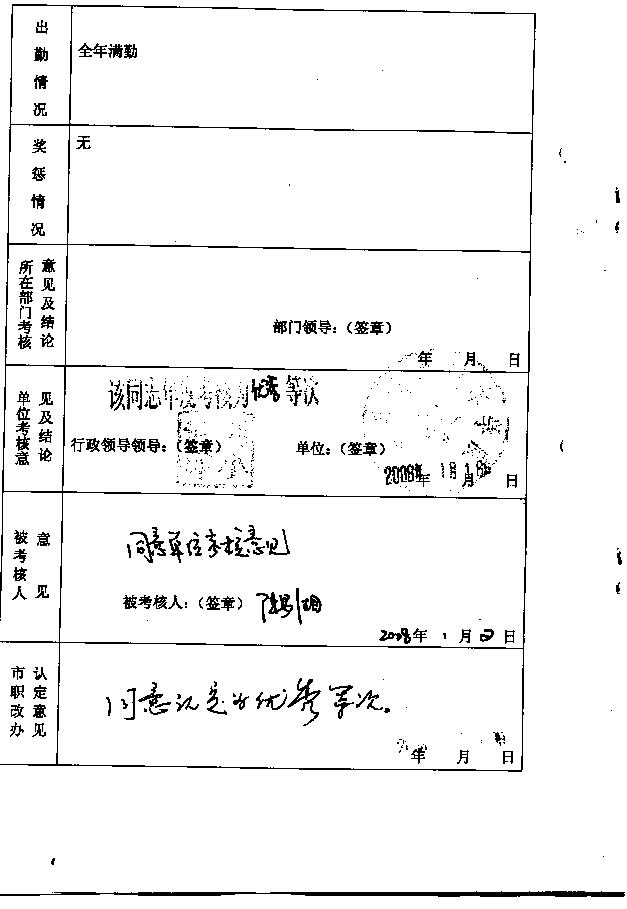 出勤情况
全年满勤
奖惩情况
无
所在部门考核
意见及结论
部门领导：（签章）
年 月 日
单位考核意
见及结论
该同志年度考核为优秀等次
行政领导领导：（签章） 单位：（签章）
2008年 1月18日
被考核人
意见
同意单位考核意见
被考核人：（签章）
2008年 1 月 日
市职改办
认定意见
同意认定为优秀等次。
年 月 日